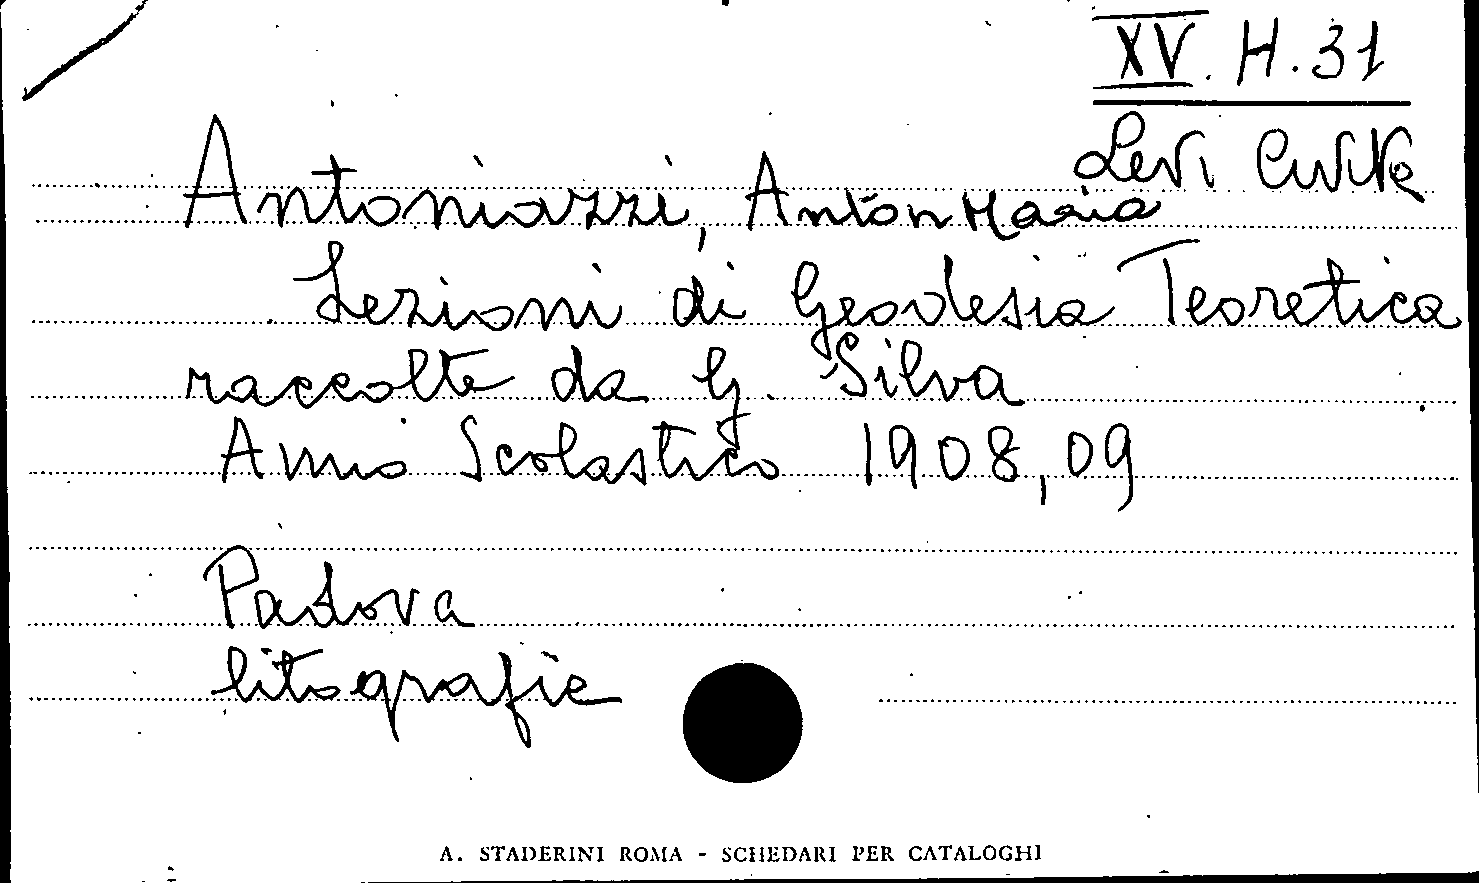 XV. H. 31
Levi Civita
Antoniazzi, Anton Maria
Lezioni di Geodesia Teoretica
raccolte da G. Silva
Anno Scolastico 1908,09
Padova
litografie
A. STADERINI ROMA - SCHEDARI PER CATALOGHI